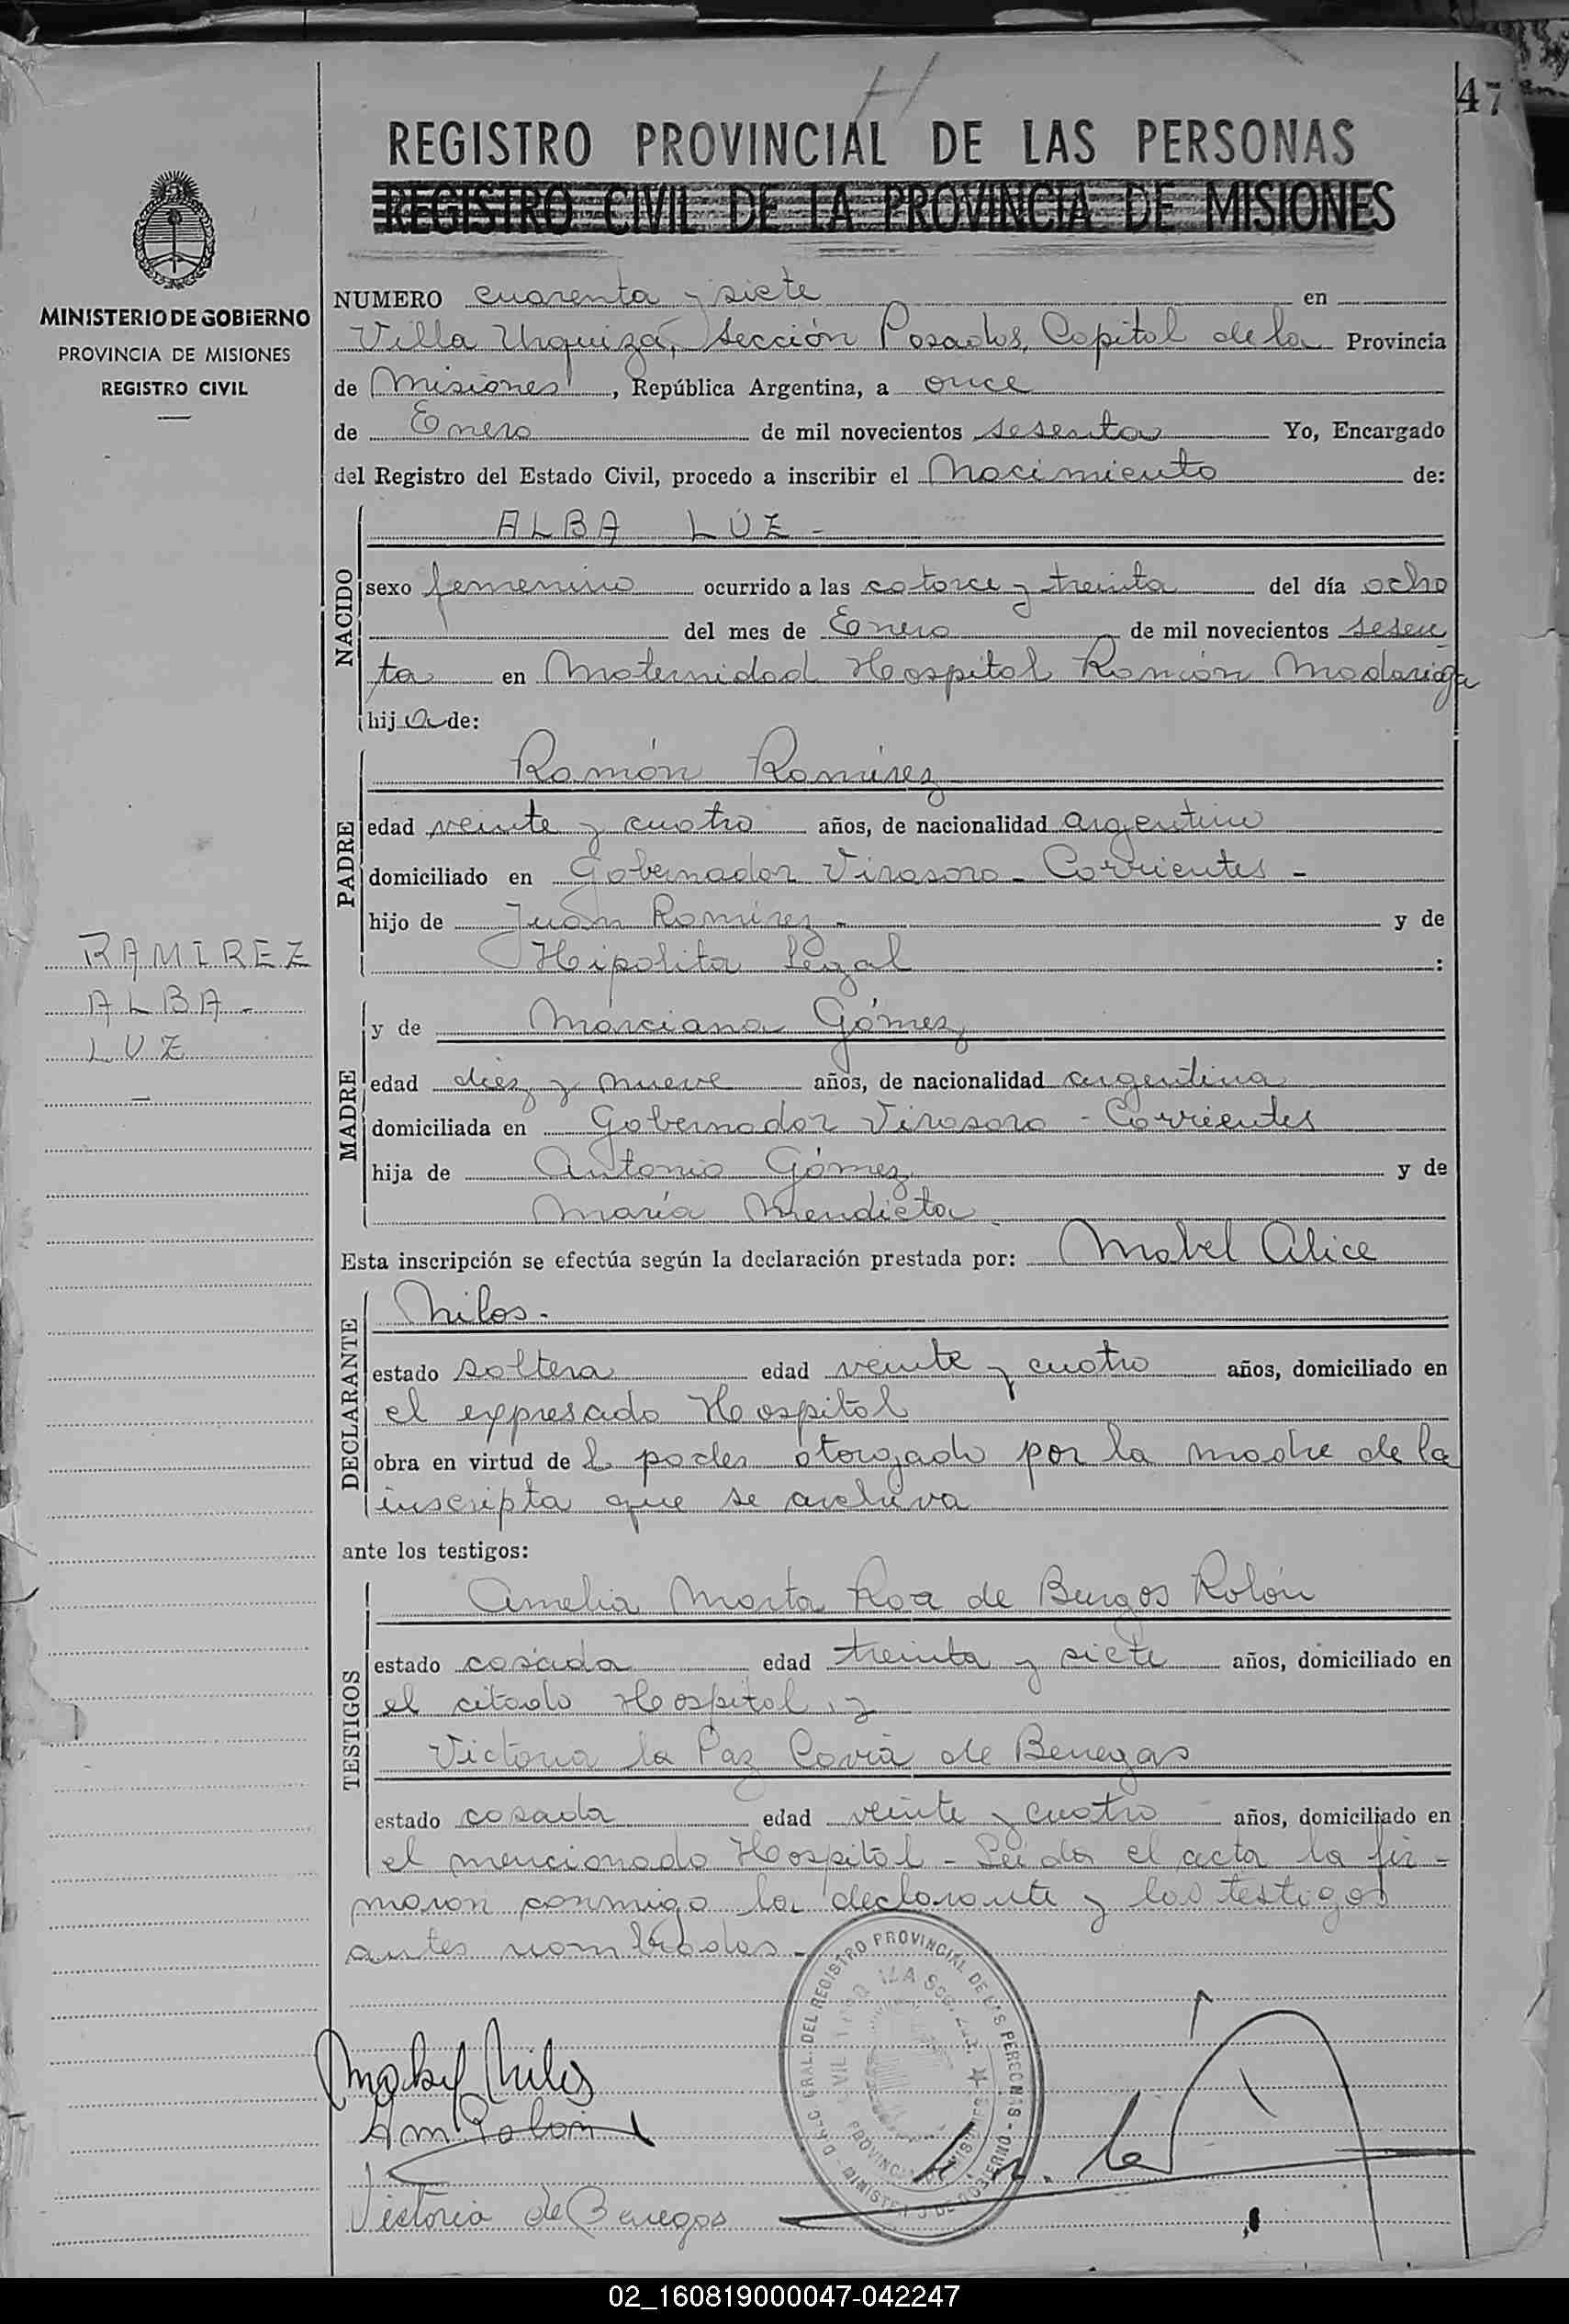 47
REGISTRO PROVINCIAL DE LAS PERSONAS
REGISTRO CIVIL DE LA PROVINCIA DE MISIONES
MINISTERIO DE GOBIERNO
PROVINCIA DE MISIONES
REGISTRO CIVIL
NUMERO cuarenta y siete en
Villa Urquiza, Sección Posadas, Capital de la Provincia
de Misiones, República Argentina, a once
de Enero de mil novecientos sesenta Yo, Encargado
del Registro del Estado Civil, procedo a inscribir el Nacimiento de:
NACIDO
ALBA LUZ -
sexo femenino ocurrido a las catorce y treinta del día ocho
del mes de Enero de mil novecientos sesen
ta en Maternidad Hospital Ramón Madariaga
hija de:
PADRE
Ramón Ramírez
edad veinte y cuatro años, de nacionalidad argentino
domiciliado en Gobernador Virasoro - Corrientes -
hijo de Juan Ramírez - y de
Hipolita Legal :
RAMIREZ
ALBA -
LUZ
MADRE
y de Marciana Gómez
edad diez y nueve años, de nacionalidad argentina
domiciliada en Gobernador Virasoro - Corrientes
hija de Antonio Gómez y de
María Mendieta
Esta inscripción se efectúa según la declaración prestada por: Mabel Alice
DECLARANTE
Milos -
estado soltera edad veinte y cuatro años, domiciliado en
el expresado Hospital
obra en virtud de l poder otorgado por la madre de la
inscripta que se archiva
ante los testigos:
TESTIGOS
Amelia Marta Roa de Burgos Rolón
estado casada edad treinta y siete años, domiciliado en
el citado Hospital, y
Victoria la Paz de Benegas
estado casada edad veinte y cuatro años, domiciliado en
el mencionado Hospital - Leída el acta la fir-
maron conmigo la declarante y los testigos
antes nombrados -
DEL REGISTRO PROVINCIAL DE LAS PERSONAS - MINISTERIO DE GOBIERNO
Mabel Milos
Am Rolón
Victoria de Benegas
02_160819000047-042247